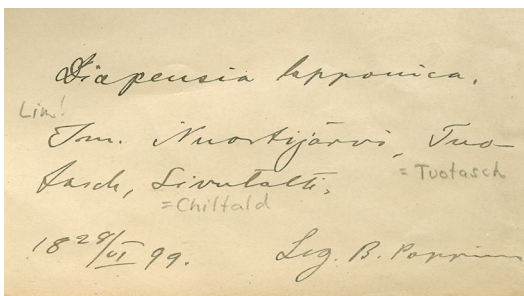 Diapensia lapponica.
Lim!
Im. Nuortijärvi, Tuo-
= Tuotasch
tasch, Livutalti,
= Chiltald
18 28/VI 99. Leg. B. Poppius